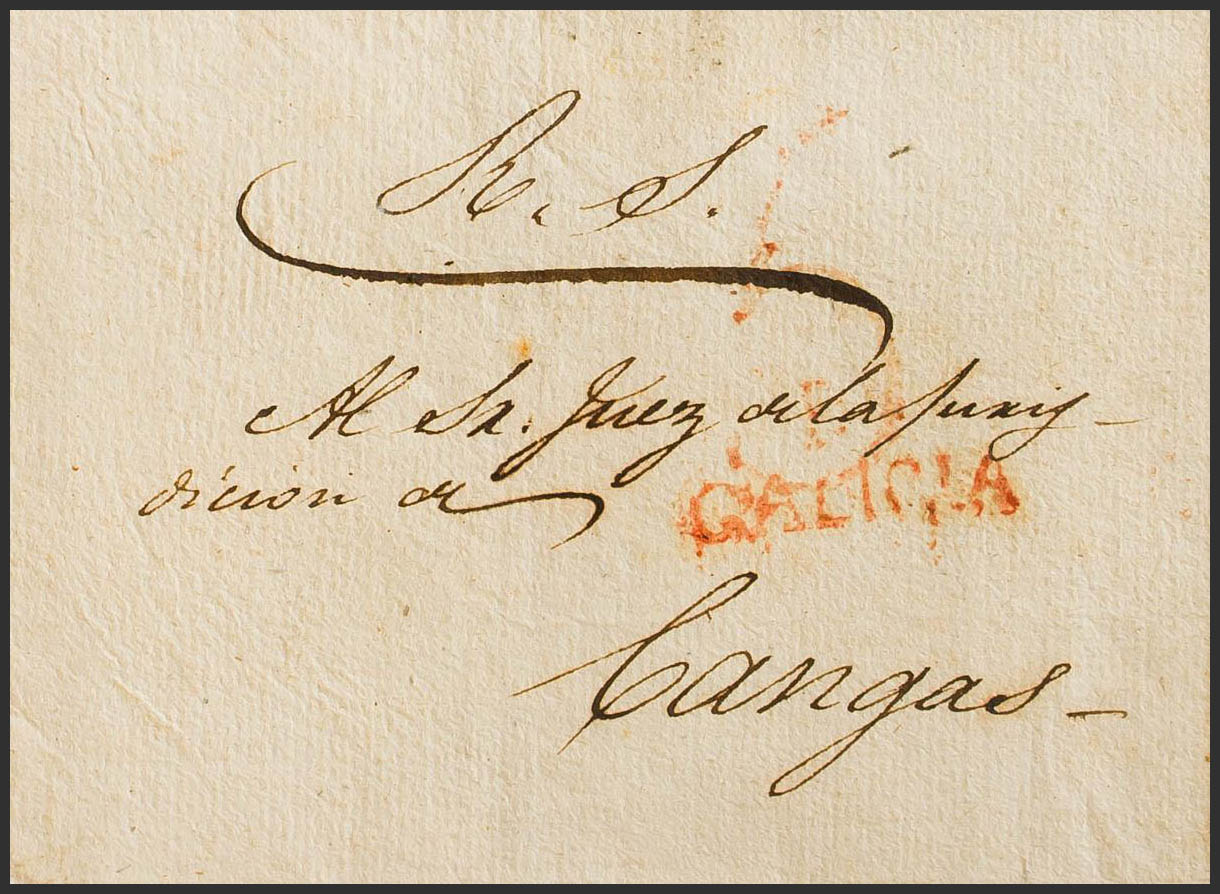 R. S.
Al Sr. Juez de la Juris-
dicion de
GALICIA
Cangas -